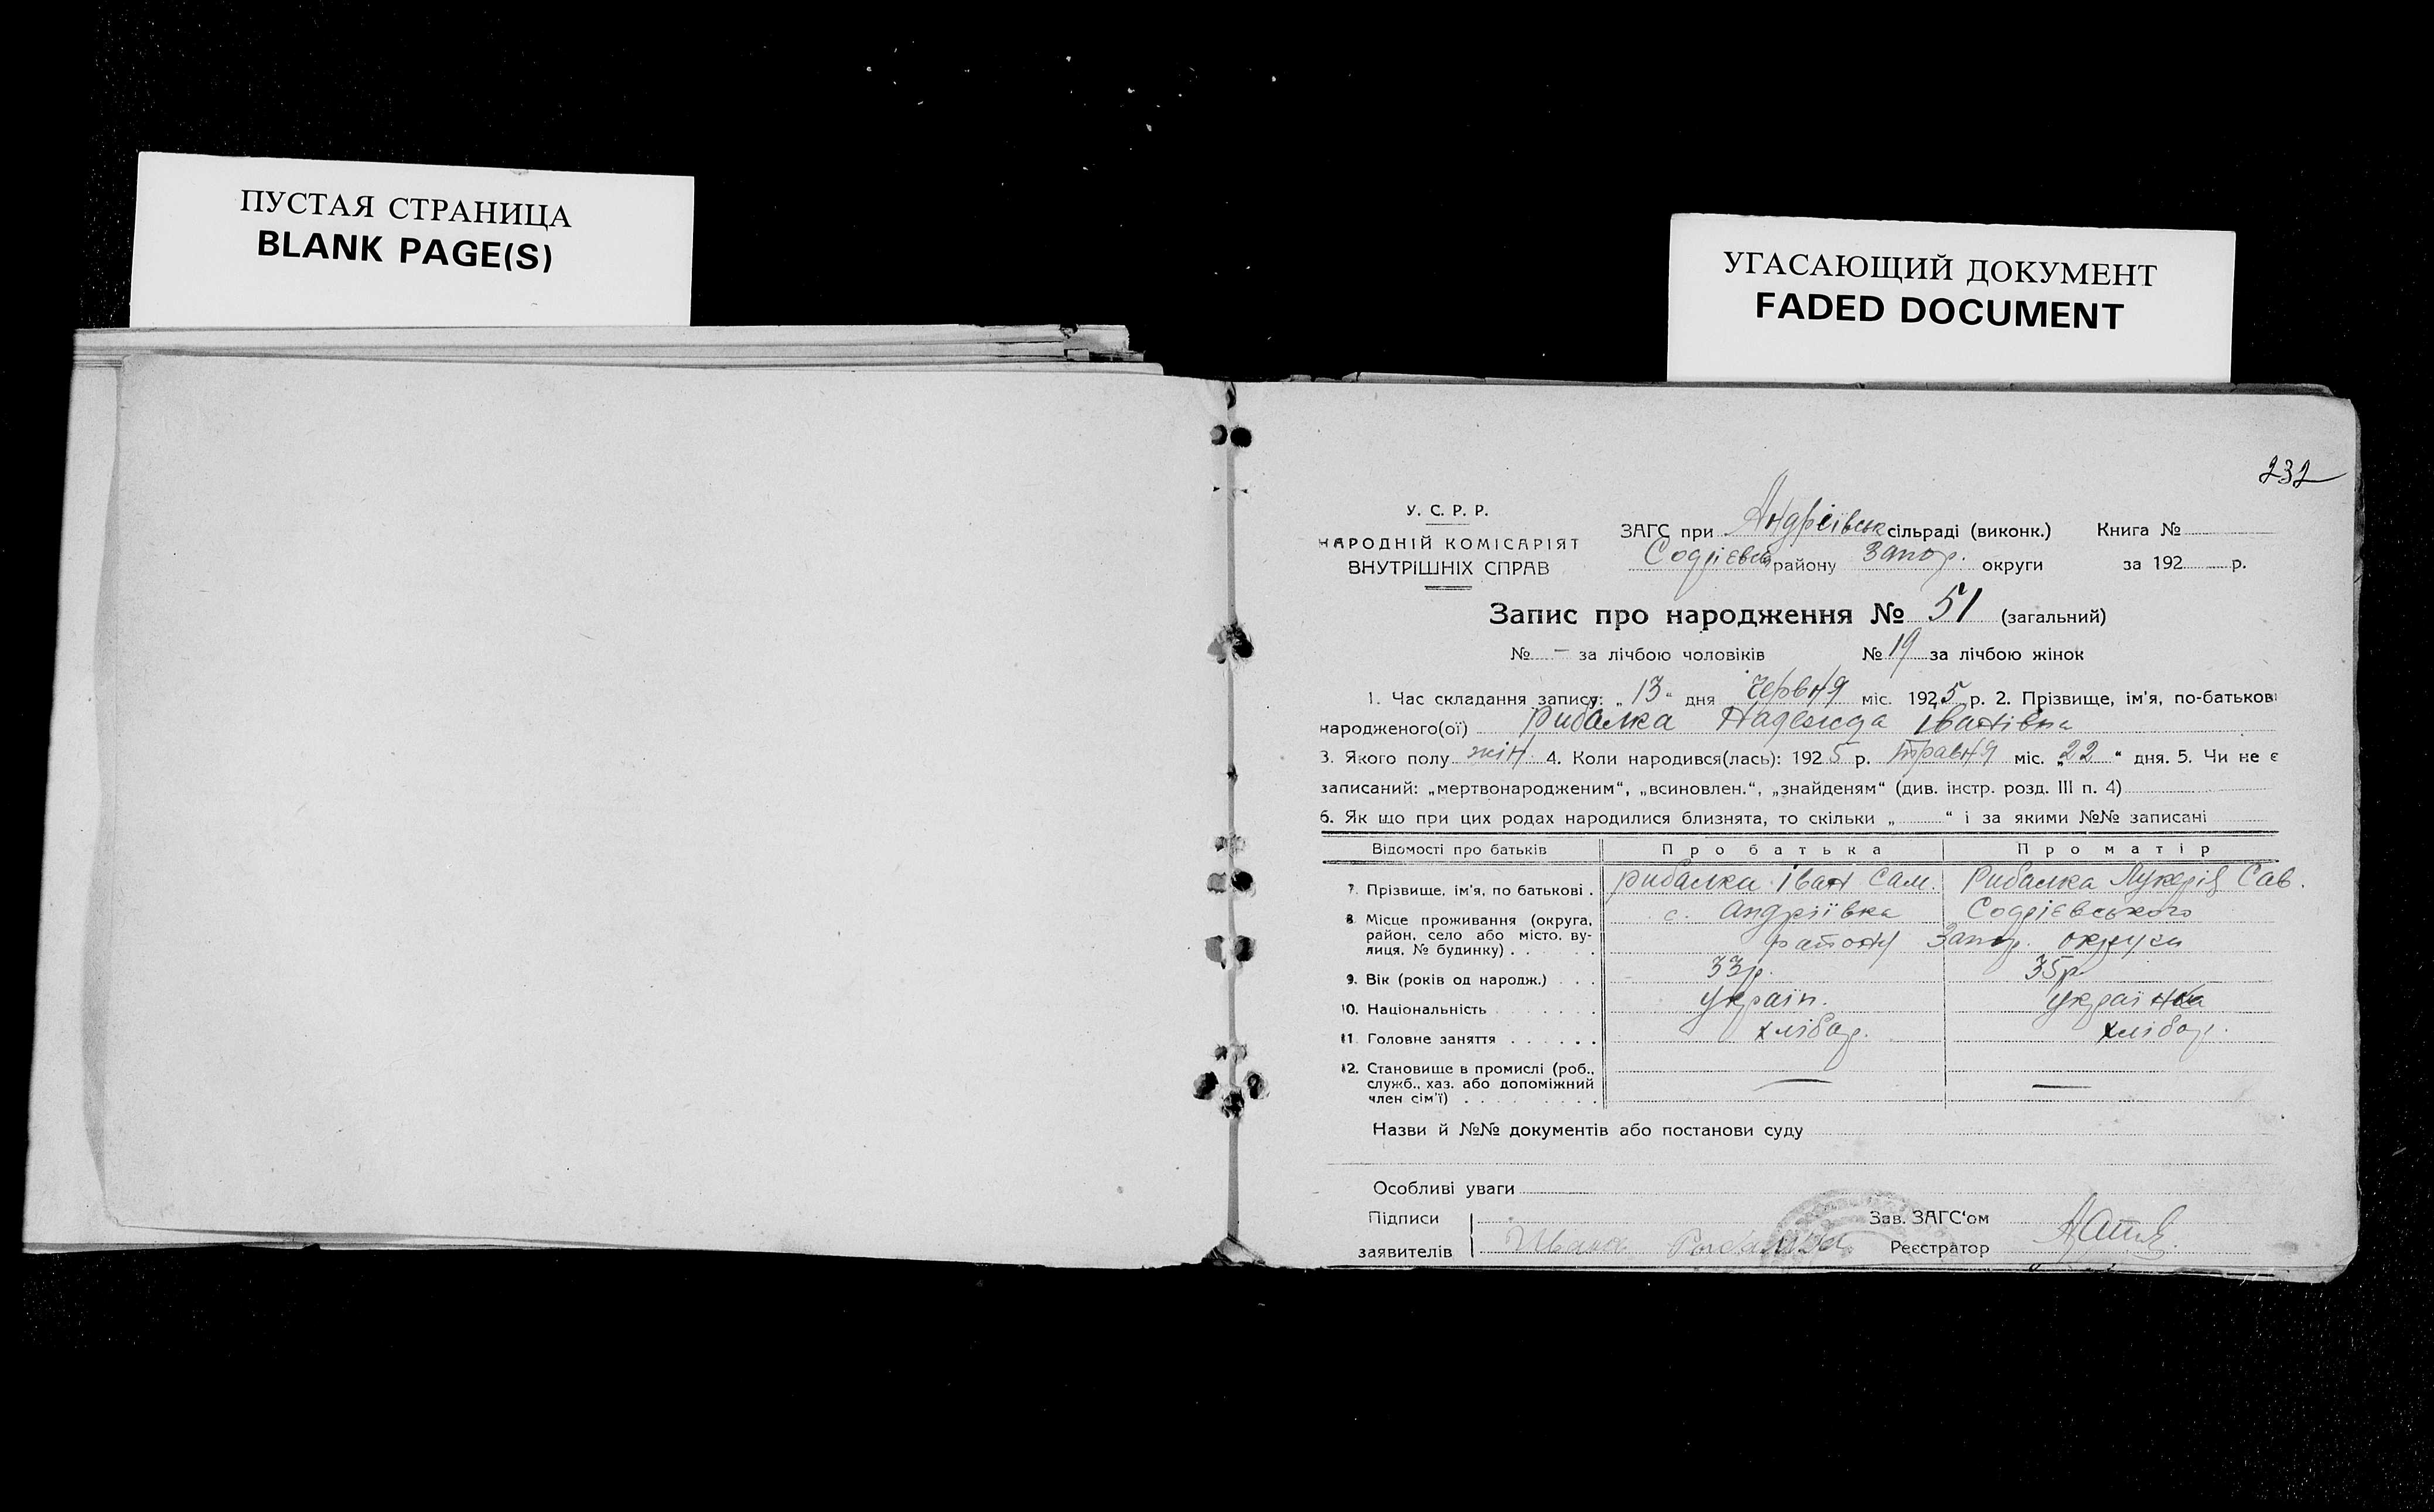 ПУСТАЯ СТРАНИЦА
BLANK PAGE(S)
УГАСАЮЩИЙ ДОКУМЕНТ
FADED DOCUMENT
232
У. С. Р. Р.
НАРОДНІЙ КОМІСАРІЯТ
ВНУТРІШНІХ СПРАВ
ЗАГС при Андріївськ сільраді (виконк.) Книга №
району Запор. округи за 192 р.
Запис про народження № 51 (загальний)
№ — за лічбою чоловіків № 19 за лічбою жінок
1. Час складання запису: „ 13 “ дня червня міс. 1925 р. 2. Прізвище, ім'я, по-батькові
народженого(ої) Рибалка Надежда Іванівна
3. Якого полу жін. 4. Коли народився(лась): 1925 р. травня міс. „ 22 “ дня. 5. Чи не є
записаний: „мертвонародженим“, „всиновлен.“, „знайденям“ (див. інстр. розд. III п. 4)
6. Як що при цих родах народилися близнята, то скільки „ “ і за якими №№ записані
Відомості про батьків Про батька Про матір
7. Прізвище, ім'я, по батькові . Рибалка Іван Сам. Рибалка Лукерія Сав.
8. Місце проживання (округа, район, село або місто, вулиця, № будинку) . с. Андріївка Софієвського
району Запор. округи
9. Вік (років од народж.) 33р. 35р.
10. Національність україн. українка
11. Головне заняття хлібор. хлібор.
12. Становище в промислі (роб., служб., хаз. або допоміжний член сім'ї) — —
Назви й №№ документів або постанови суду
Особливі уваги
Підписи Зав. ЗАГС'ом
заявителів Иван Рибалка Реєстратор